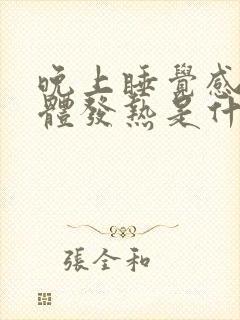 晚上睡覺感
體發熱是什
張全和